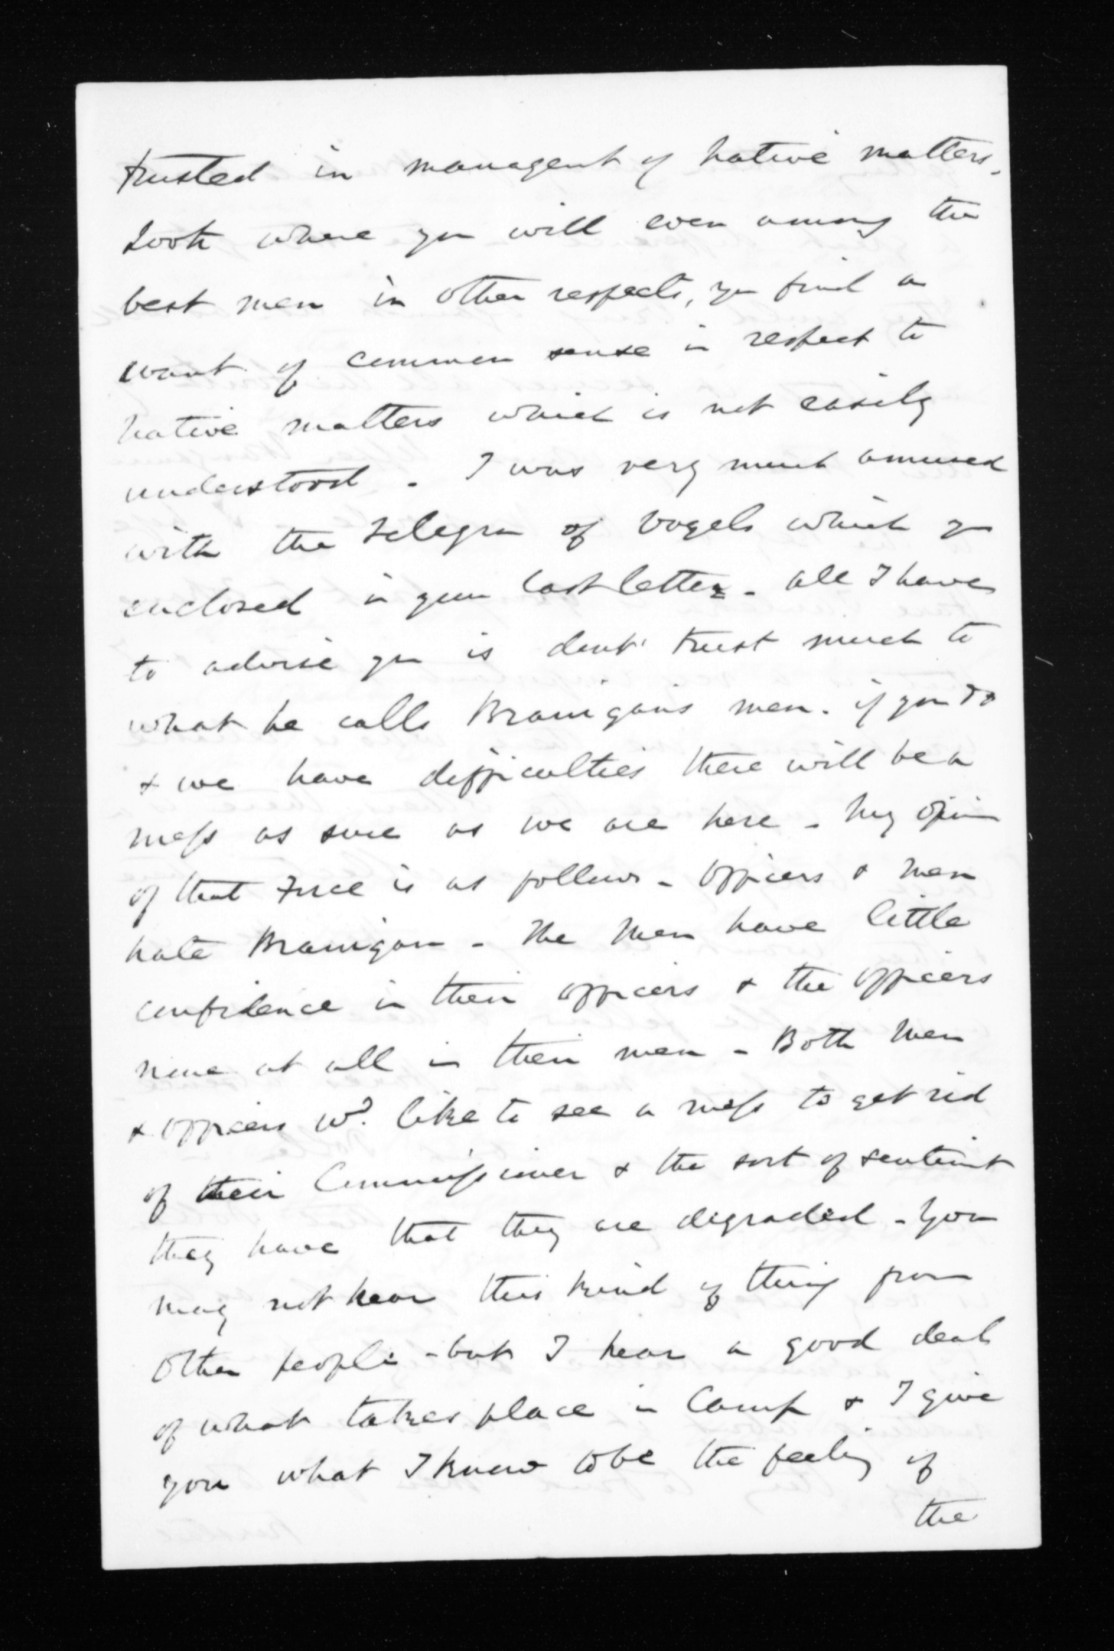 trusted in managent of native matters.
Look where you will even among the
best men in other respects, you find a
want of common sense in respect to
native matters which is not easily
understood. I was very much amused
with the Telegram of Vogels which you
enclosed in your last letter. all I have
to advise you is dont trust much to
what he calls Branigans men. if you do
& we have difficulties there will be a
mess as sure as we are here - My opinion
of that Force is as follows - Officers & men
hate Branigan - The Men have little
confidence in their officers & the officers
none at all in their men - Both Men
& officers wd. like to see a mess to get rid
of their Commissioner & the sort of sentiment
they have that they are degraded - You
may not hear this kind of thing from
other people - but I hear a good deal
of what takes place in Camp & I give
you what I know to be the feeling of
the